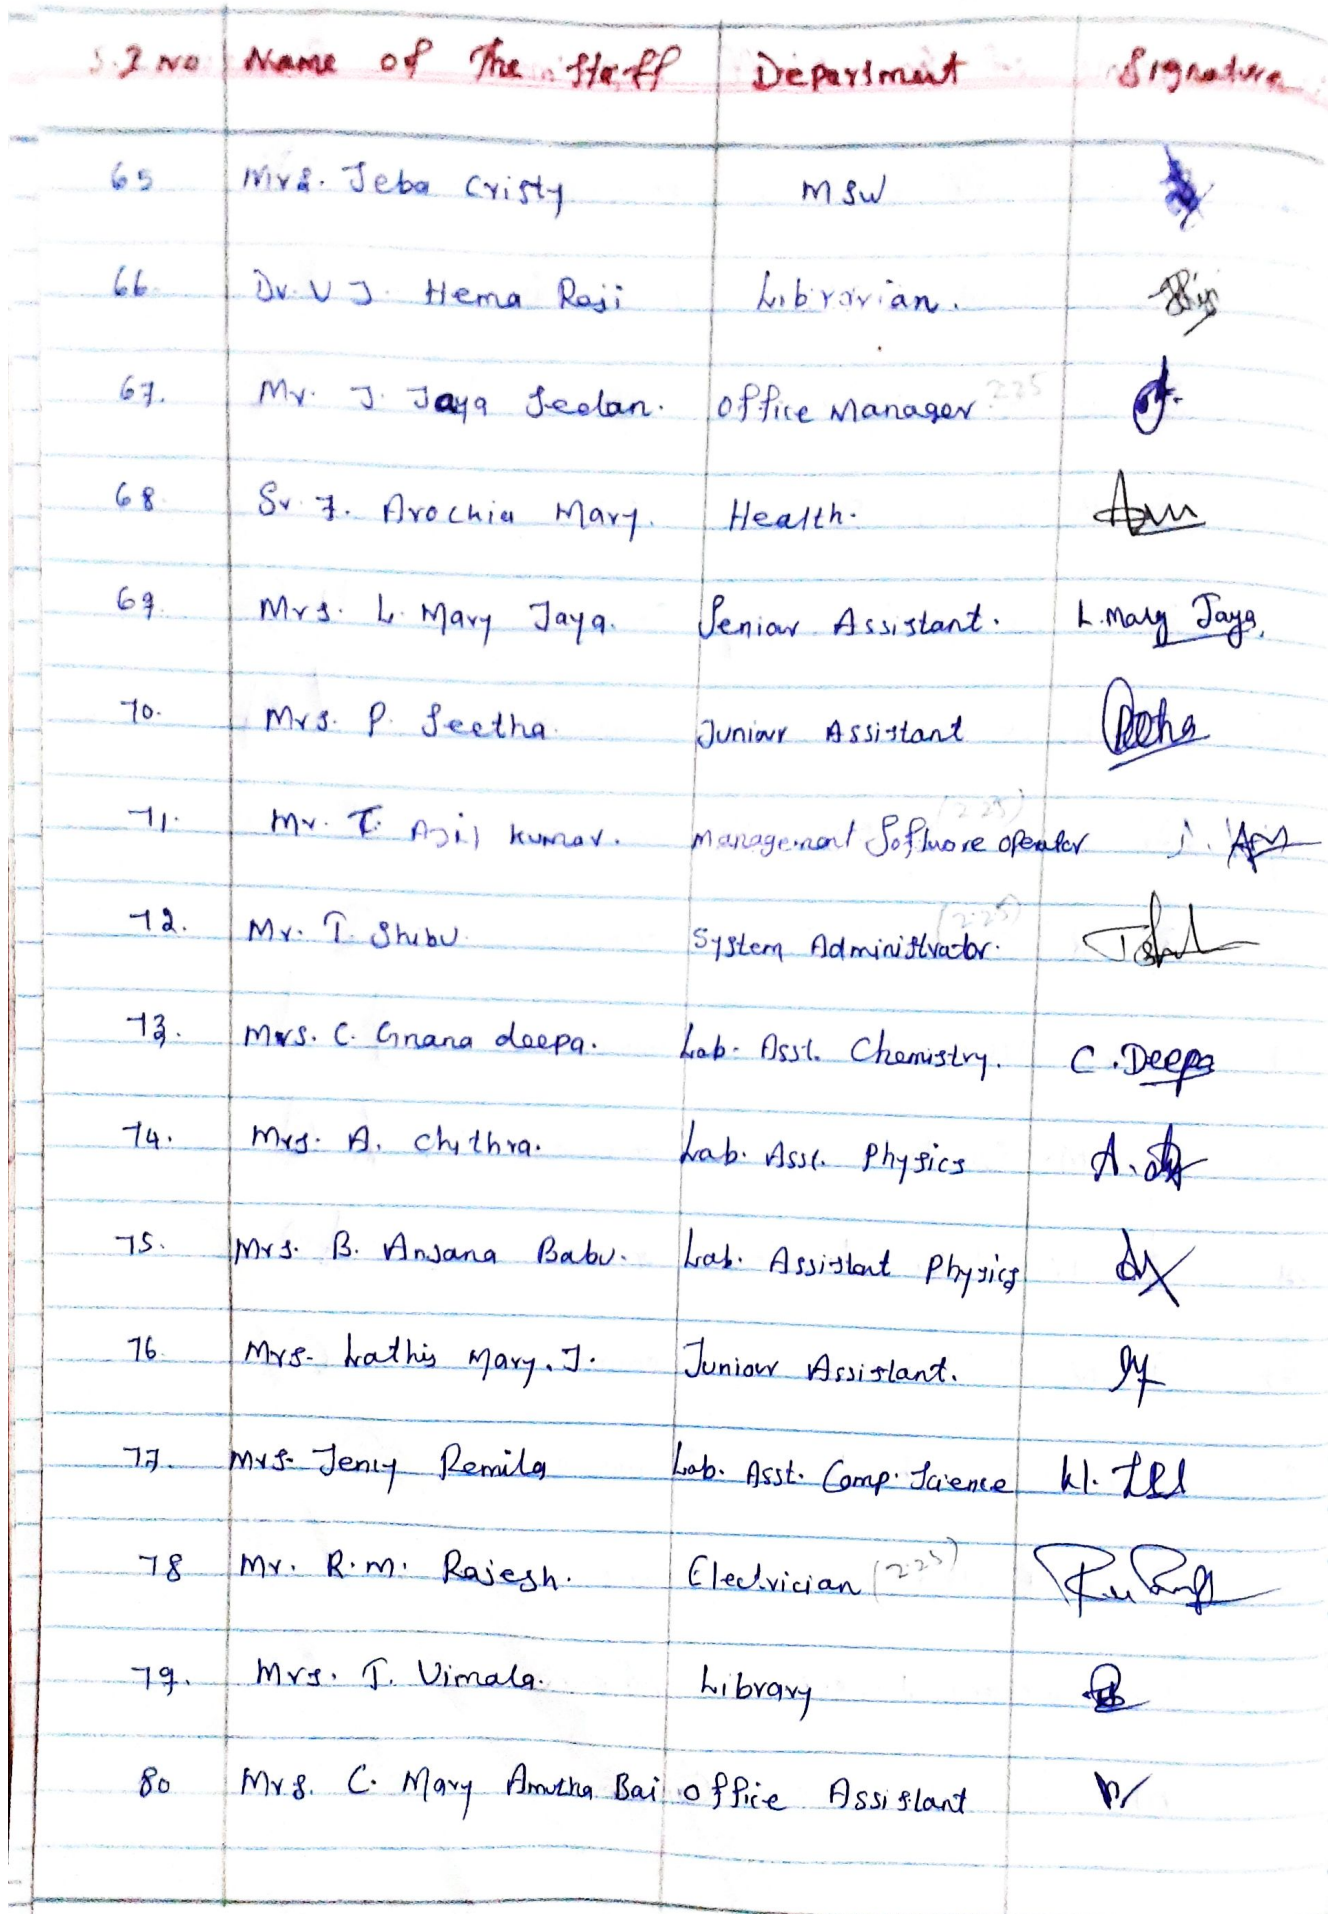 S.I no Name of The Staff Department Signature
65 Mrs. Jeba Cristy MSW
66. Dr. V J. Hema Raji Librarian.
67. Mr. J. Jaya Seelan. Office Manager 2.25
68. Sr. F. Arochia Mary. Health.
69. Mrs. L. Mary Jaya. Senior Assistant. L. Mary Jaya,
70. Mrs. P. Seetha. Junior Assistant
71. Mr. T. Ajil Kumar. Management Software operator (2.25)
72. Mr. T. Shibu. System Administrator. (2.25)
73. Mrs. C. Gnana deepa. Lab. Asst. Chemistry. C. Deepa
74. Mrs. A. Chithra. Lab. Asst. Physics
75. Mrs. B. Anjana Babu. Lab. Assistant Physics
76. Mrs. Lathis Mary. J. Junior Assistant.
77. Mrs. Jency Remila Lab. Asst. Comp. Science
78 Mr. R.M. Rajesh. Electrician (2.25)
79. Mrs. T. Vimala. Library
80 Mrs. C. Mary Amutha Bai Office Assistant